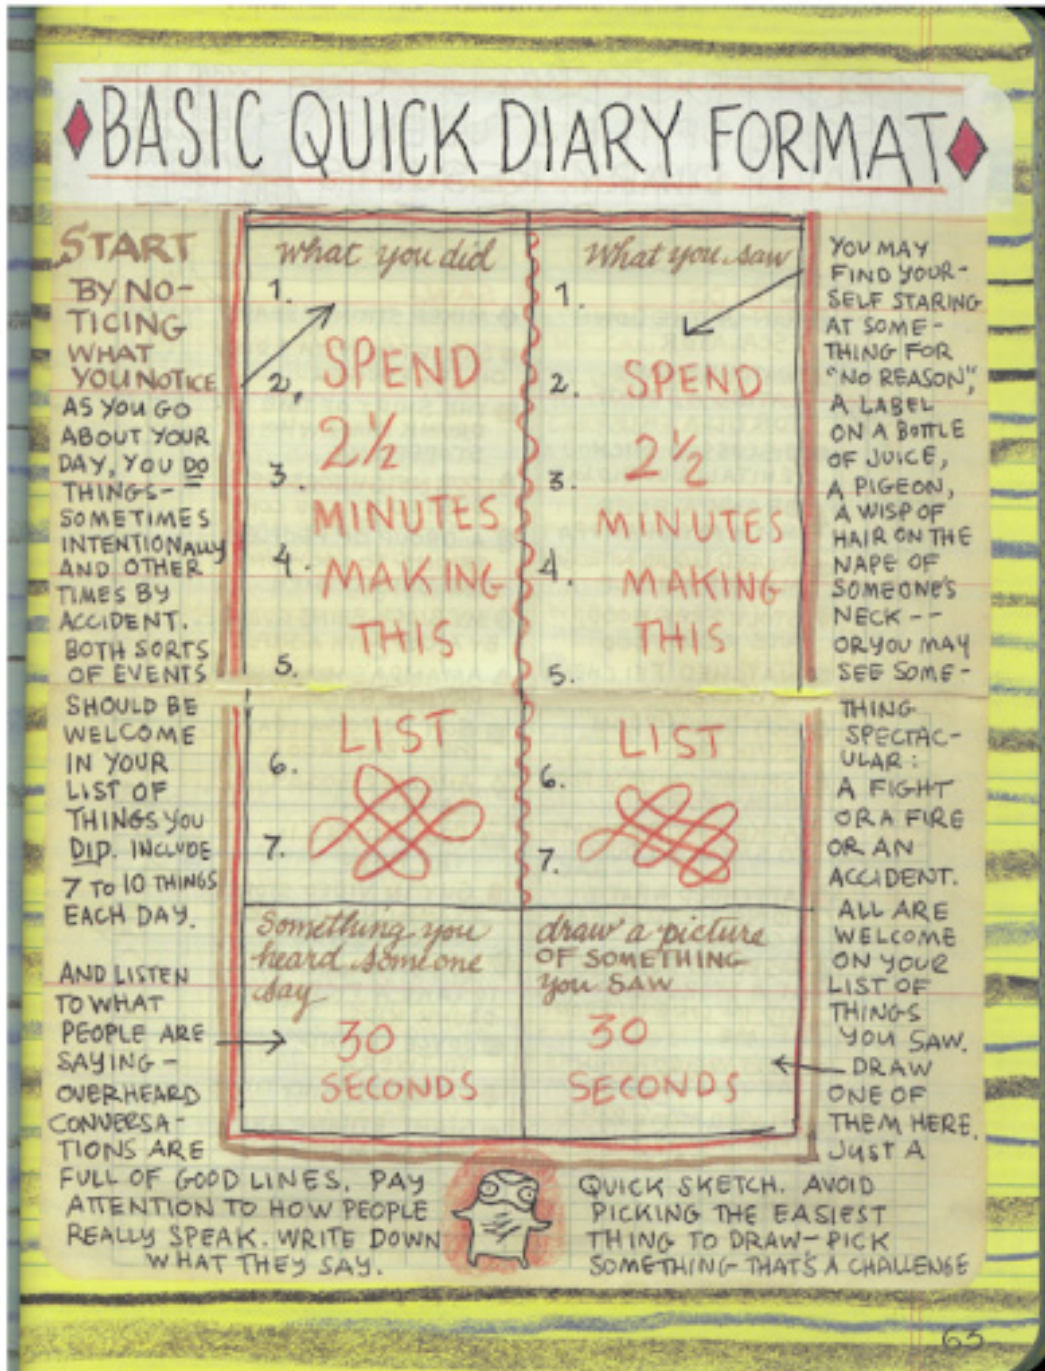 BASIC QUICK DIARY FORMAT
START
BY NO-
TICING
WHAT
YOU NOTICE
AS YOU GO
ABOUT YOUR
DAY, YOU DO
THINGS-
SOMETIMES
INTENTIONALLY
AND OTHER
TIMES BY
ACCIDENT.
BOTH SORTS
OF EVENTS
SHOULD BE
WELCOME
IN YOUR
LIST OF
THINGS YOU
DID. INCLUDE
7 TO 10 THINGS
EACH DAY.
AND LISTEN
TO WHAT
PEOPLE ARE
SAYING -
OVERHEARD
CONVERSA-
TIONS ARE
FULL OF GOOD LINES. PAY
ATTENTION TO HOW PEOPLE
REALLY SPEAK. WRITE DOWN
WHAT THEY SAY.
What you did
1.
SPEND
2.
2½
3.
MINUTES
4.
MAKING
THIS
5.
LIST
6.
7.
What you saw
1.
SPEND
2.
2½
3.
MINUTES
4.
MAKING
THIS
5.
LIST
6.
7.
Something you
heard someone
say
30
SECONDS
draw a picture
OF SOMETHING
you SAW
30
SECONDS
YOU MAY
FIND YOUR-
SELF STARING
AT SOME-
THING FOR
"NO REASON",
A LABEL
ON A BOTTLE
OF JUICE,
A PIGEON,
A WISP OF
HAIR ON THE
NAPE OF
SOMEONE'S
NECK --
OR YOU MAY
SEE SOME-
THING
SPECTAC-
ULAR:
A FIGHT
OR A FIRE
OR AN
ACCIDENT.
ALL ARE
WELCOME
ON YOUR
LIST OF
THINGS
YOU SAW.
DRAW
ONE OF
THEM HERE.
JUST A
QUICK SKETCH. AVOID
PICKING THE EASIEST
THING TO DRAW-PICK
SOMETHING THAT'S A CHALLENGE
63